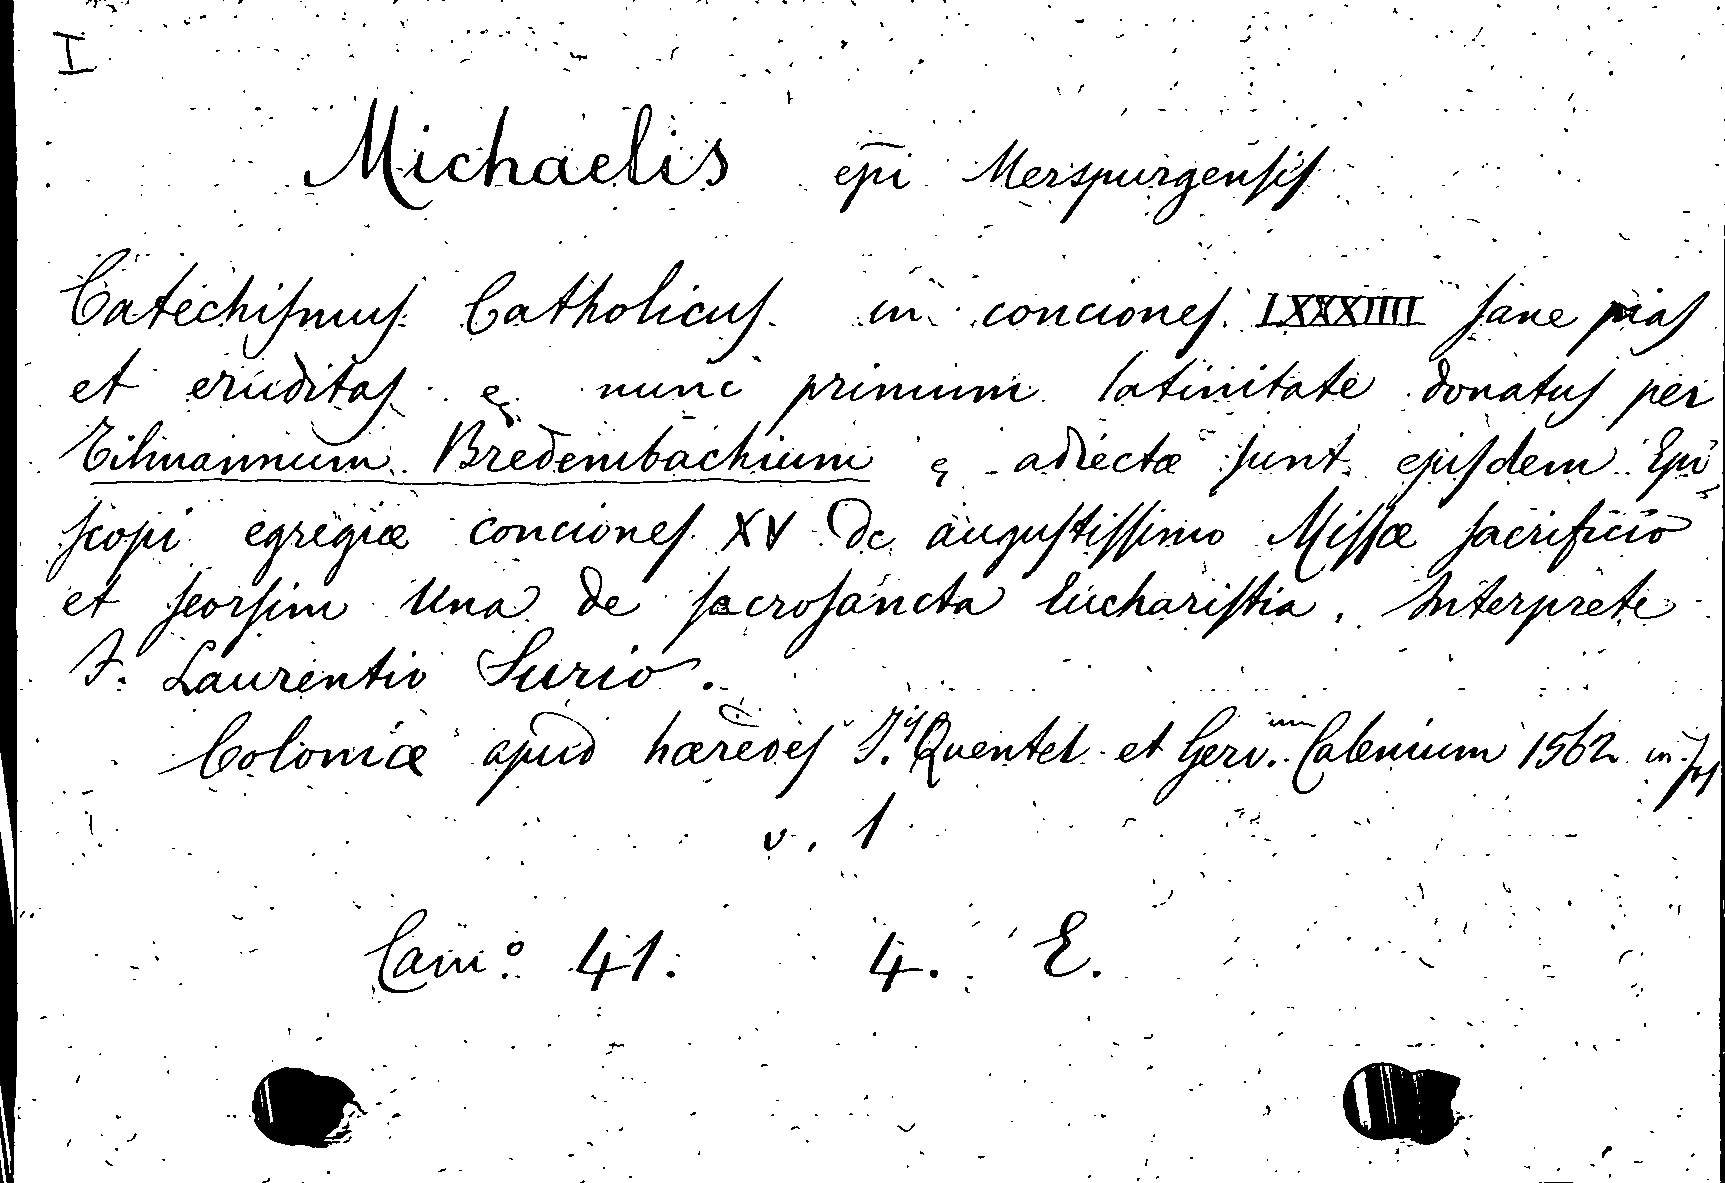 I
Michaelis epī Merspurgensis
Catechismus Catholicus in conciones LXXXIIII sane pias
et eruditas & nunc primum latinitate donatus per
Tilmannum Bredembachium & adiectæ sunt ejusdem Epi
scopi egregiæ conciones XV de augustissimo Missæ sacrificio
et seorsim una de sacrosancta Eucharistia. Interprete
F. Laurentio Surio.
Coloniæ apud hæredes J. Quentel et Gerv. Calenium 1562 in
v. 1
Cam.º 41. 4. E.